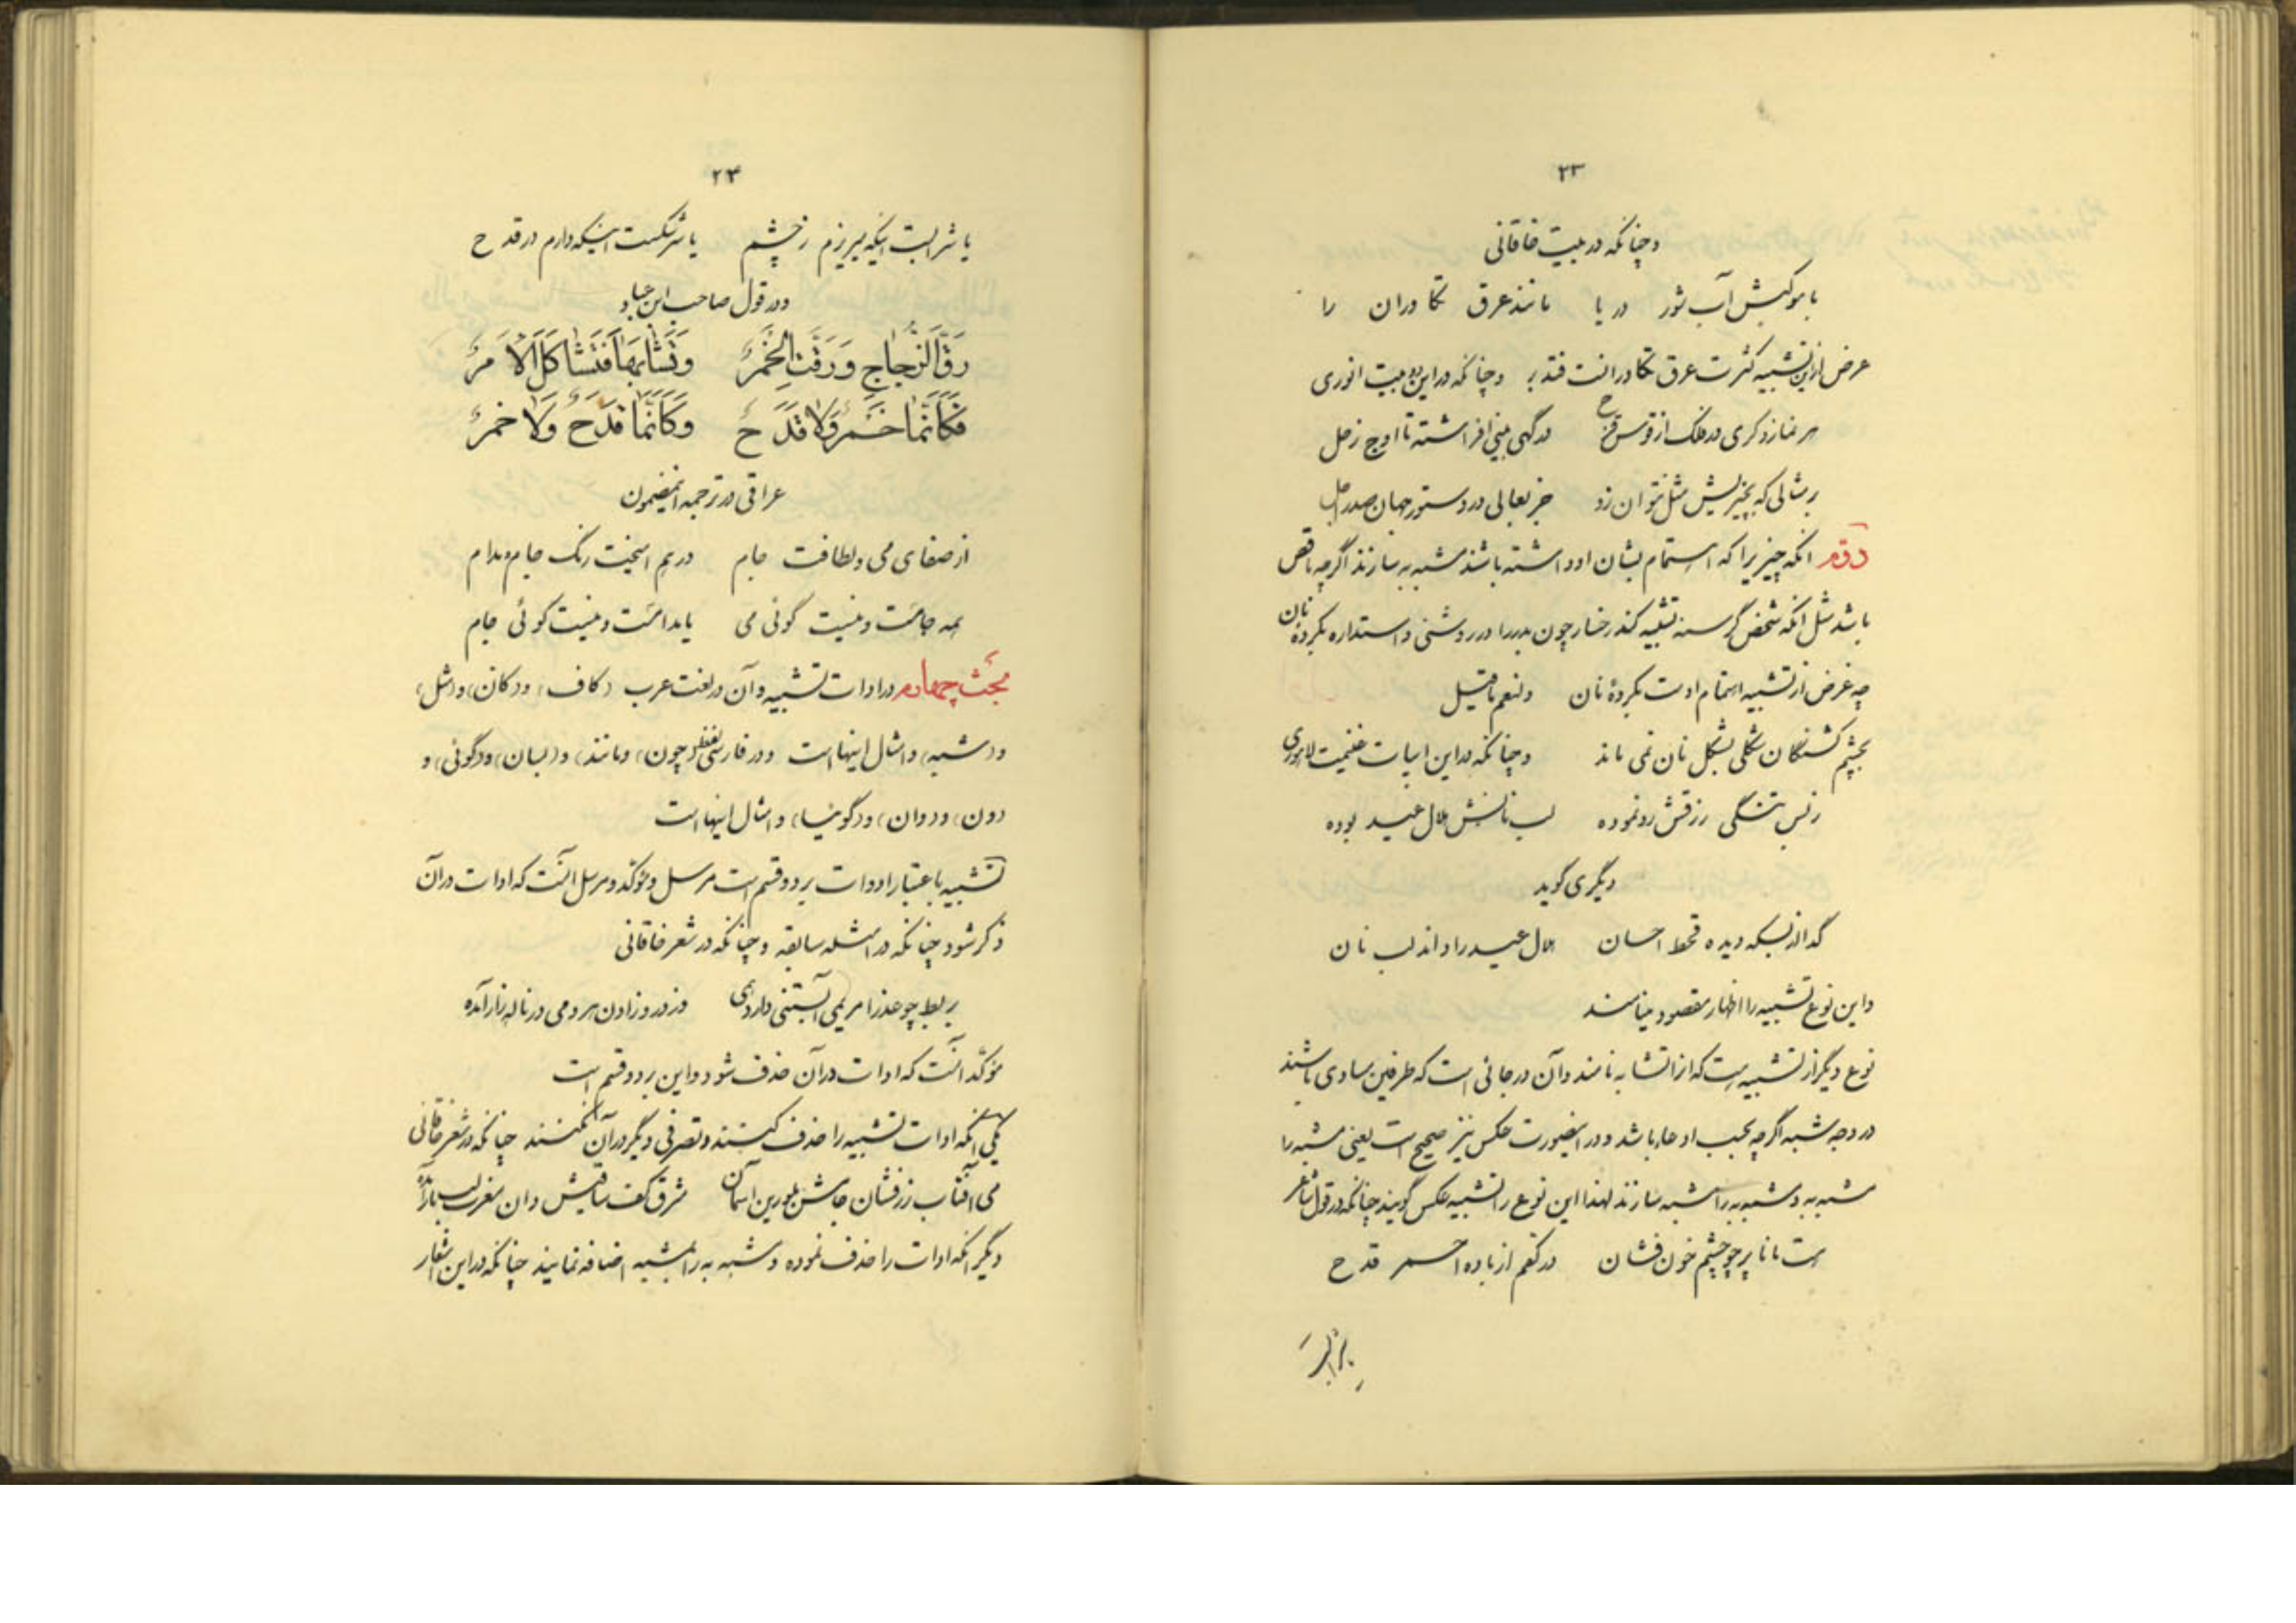 ۲۳
و چنانکه در بیت خاقانی
با موکبش آب شور دریا مانند عرق تکاوران را
غرض ازین تشبیه کثرت عرق تکاورانست فتدبر و چنانکه در این دو بیت انوری
هر نمازدگری در فلک از قوس قزح درگهی بینی افراشته تا اوج زحل
بمثالی که بچیزیش مثل نتوان زد جز بعالی در دستور جهان صدر اجل
دوم آنکه چیزیرا که اهتمام بشان او داشته باشند مشبه به سازند اگرچه ناقص
باشد مثل آنکه شخص گرسنه تشبیه کند رخسار چون بدر را در روشنی و استداره بگردهٔ نان
چه غرض از تشبیه اهتمام اوست بگردهٔ نان و لنعم ماقیل
بچشم گشنگان شکلی بشکل نان نمی ماند و چنانکه در این ابیات غنیمت لاهوری
ز بس تنگی رزقش رو نموده لب نانش هلال عید بوده
دیگری گوید
گدا از بسکه دیده قحط احسان هلال عید را داند لب نان
و این نوع تشبیه را اظهار مقصود مینامند
نوع دیگر از تشبیه است که آنرا تشابه نامند و آن در جائی است که طرفین مساوی باشند
در وجه شبه اگرچه بحسب ادعاء باشد و در اینصورت عکس نیز صحیح است یعنی مشبه را
مشبه به و مشبه به را مشبه سازند لهذا این نوع را تشبیه عکس گویند چنانکه در قول شاعر
هست مانا پر چو چشم خون فشان در کفم از باده احمر قدح
۲۴
یا شرابست اینکه میریزم ز چشم یا سرشکست اینکه دارم در قدح
و در قول صاحب ابن عباد
رَقَّ الزُّجاجِ وَ رَقَّتِ الخَمْرُ وَتَشابَهَا فَتَشاكَلَ الْأَمرُ
فَكَأَنَّمَا خَمْرٌ وَلَا قَدَحٌ وَكَأَنَّمَا قَدَحٌ وَلَا خَمرُ
عراقی در ترجمه اینمضمون
از صفای می و لطافت جام در هم آمیخت رنگ جام مدام
همه جامست و نیست گوئی می یا مدامست و نیست گوئی جام
مبحث چهارم در ادات تشبیه و آن در لغت عرب (کاف) و (کان) و (مثل)
و (شبه) و امثال اینهااست و در فارسی لفظ (چون) و (مانند) و (بسان) و (گوئی) و
(ون) و (وان) و (گوئیا) و امثال اینهااست
تشبیه باعتبار ادوات بر دو قسم است مرسل و مؤکد و مرسل آنست که ادات در آن
ذکر شود چنانکه در امثله سابقه و چنانکه در شعر خاقانی
بربط چو عذرا مریمی آبستنی دارد همی وز درد زادن هر دمی در ناله زار آمده
مؤکد آنست که ادات در آن حذف شود و این بر دو قسم است
یکی آنکه ادات تشبیه را حذف کنند و تصرفی دیگر در آن نکنند چنانکه در شعر خاقانی
می آفتاب زرفشان جامش بلورین آسمان مشرق کف ساقیش دان مغرب لب یار آمده
دیگر آنکه ادات را حذف نموده و مشبه به را بمشبه اضافه نمایند چنانکه در این اشعار